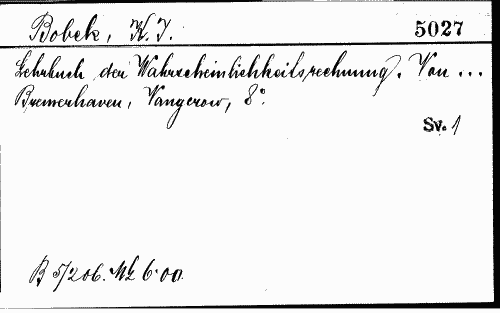 Bobek, K. J. 5027
Lehrbuch der Wahrscheinlichkeitsrechnung. Von ...
Bremerhaven, Vangerow, 8°.
Sv. 1
B 5/206. Mk 6·00